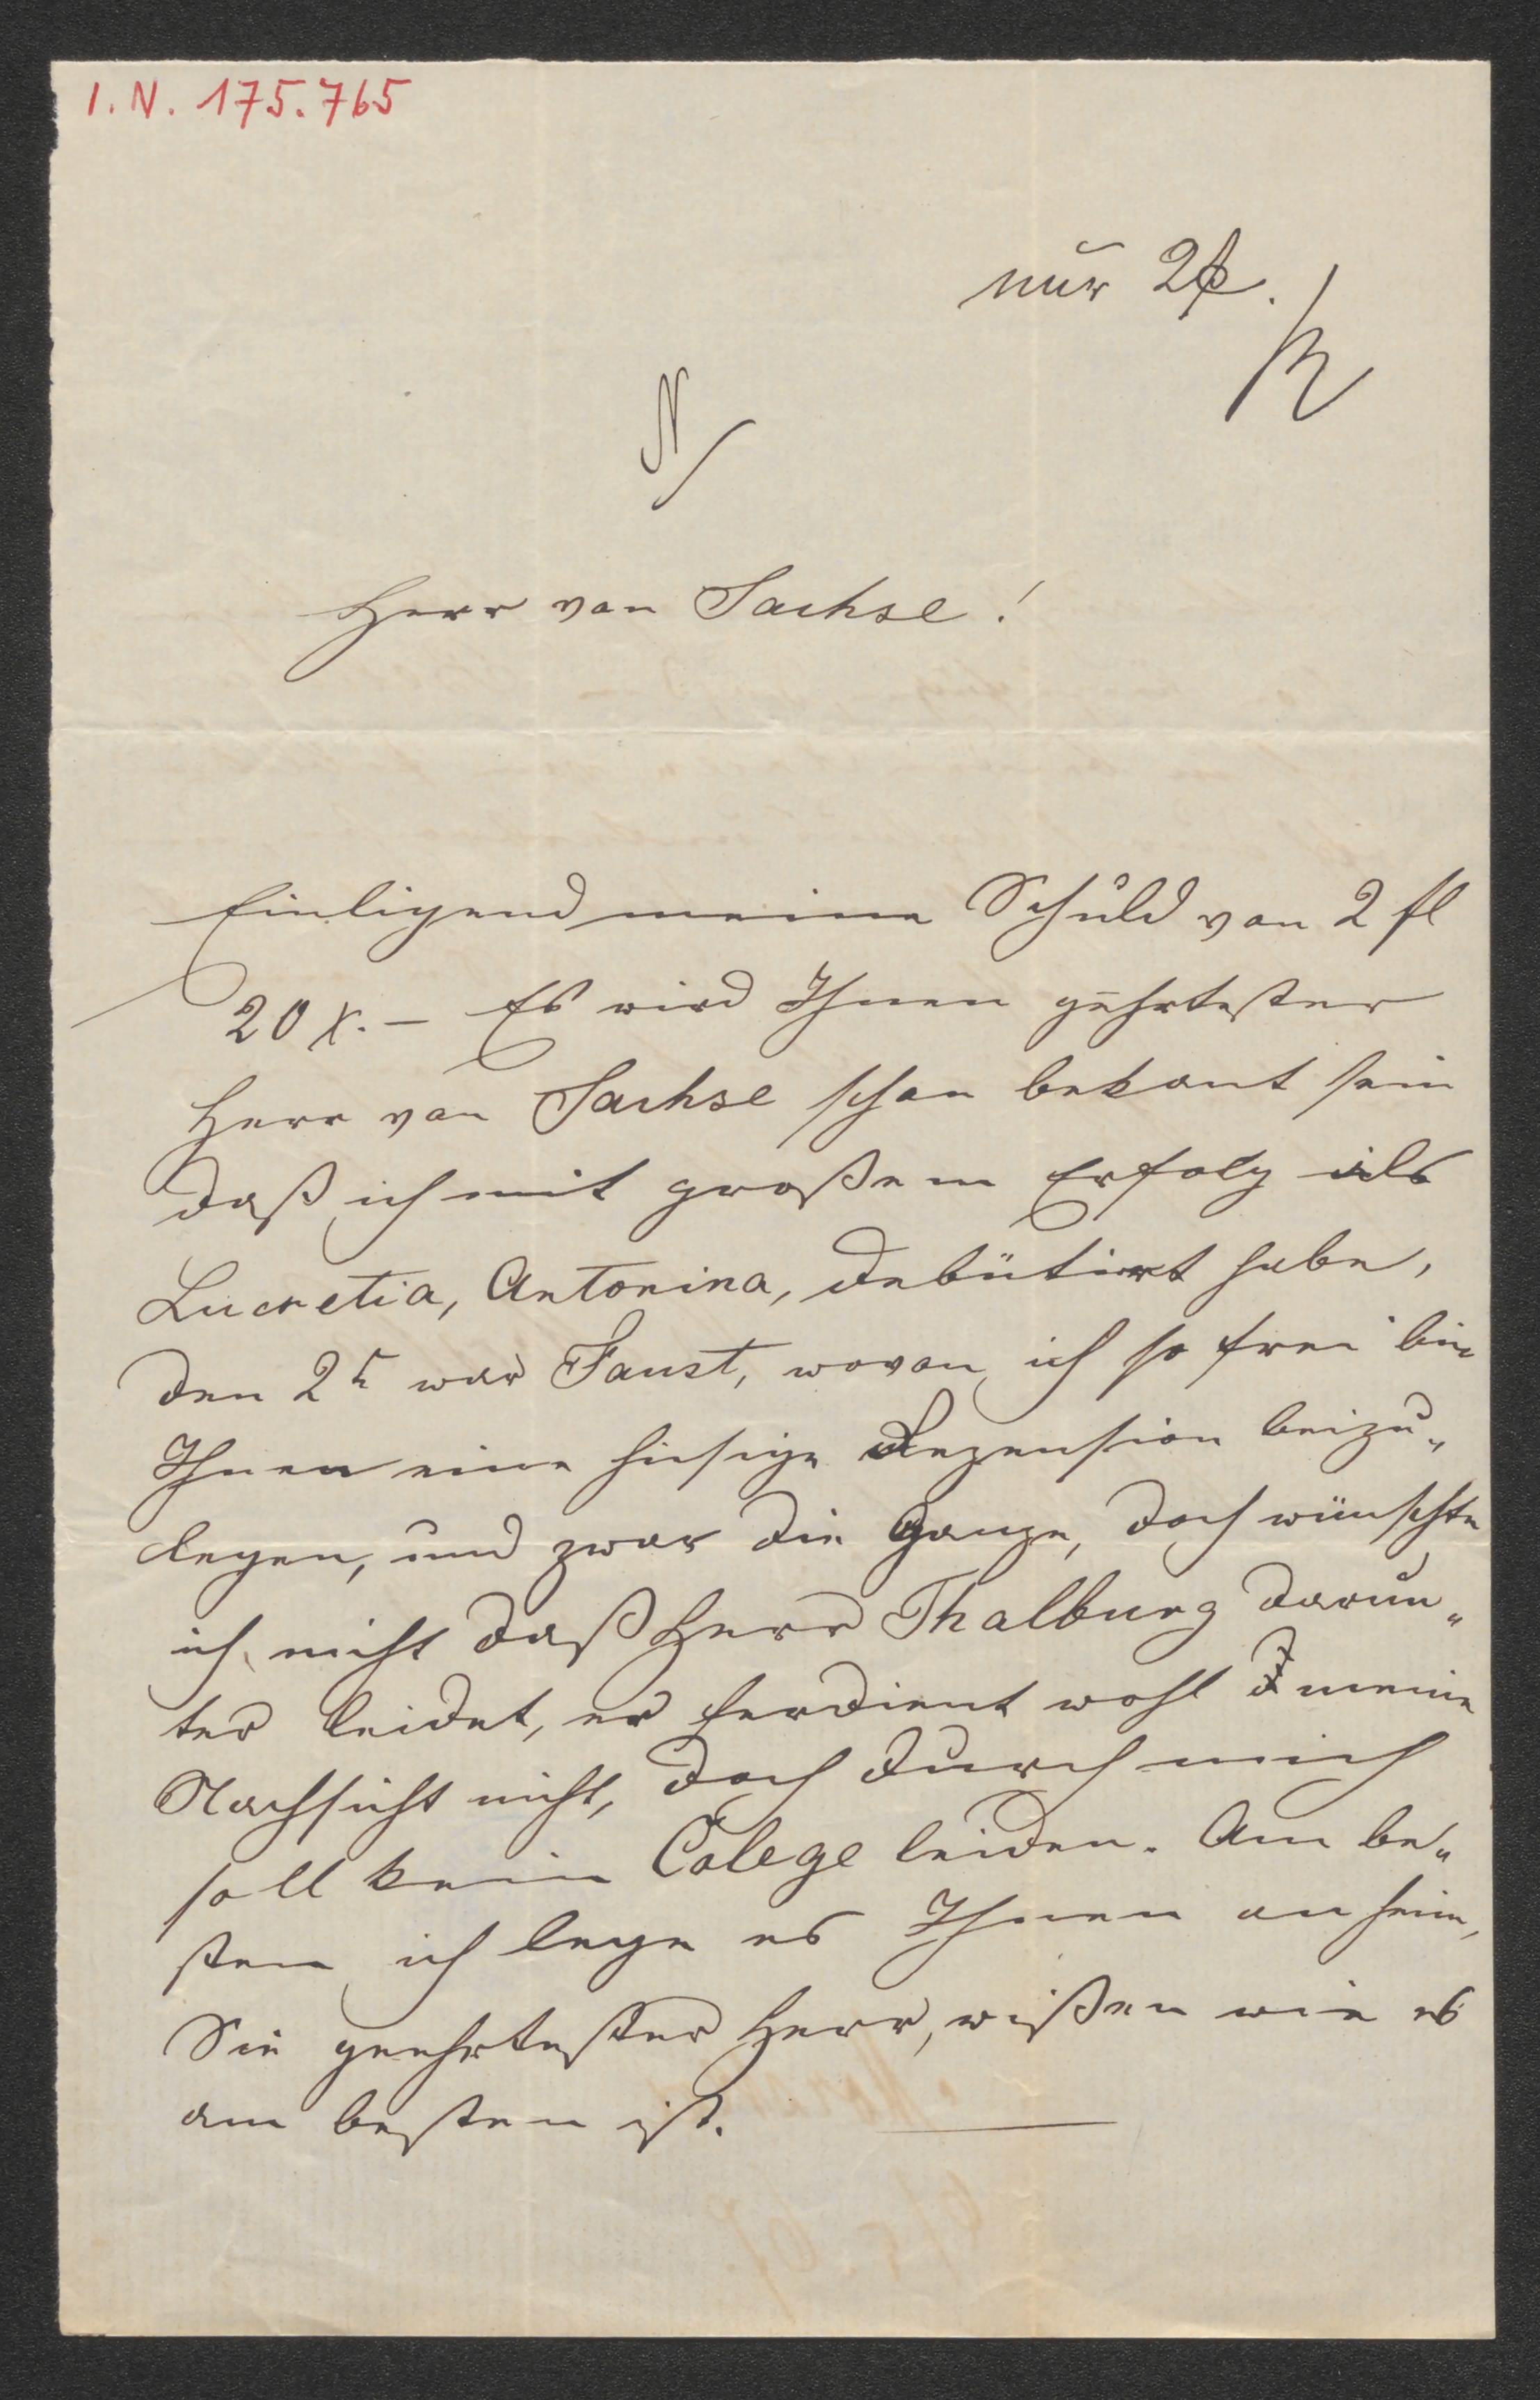 I. N. 175.765
nur 2f.
R
N
Herr von Sachse!
Einligend meine Schuld von 2 fl
20 x. – Es wird Ihnen gehrtester
Herr von Sachse schon bekant sein
daß ich mit großem Erfolg als
Lucretia, Antonina, debütirt habe,
den 2t war Faust, wovon ich so frei bin
Ihnen eine hiesige Rezension beizu„
legen, und zwar die Ganze, doch wünschte
ich nicht daß Herr Thalburg darun„
ter leidet, er ferdient wohl meine
Nachsicht nicht, doch durch mich
soll kein Colege leiden. Am be„
sten ich lege es Ihnen anheim,
Sie geehrtester Herr, wißen wie es
am besten ist.